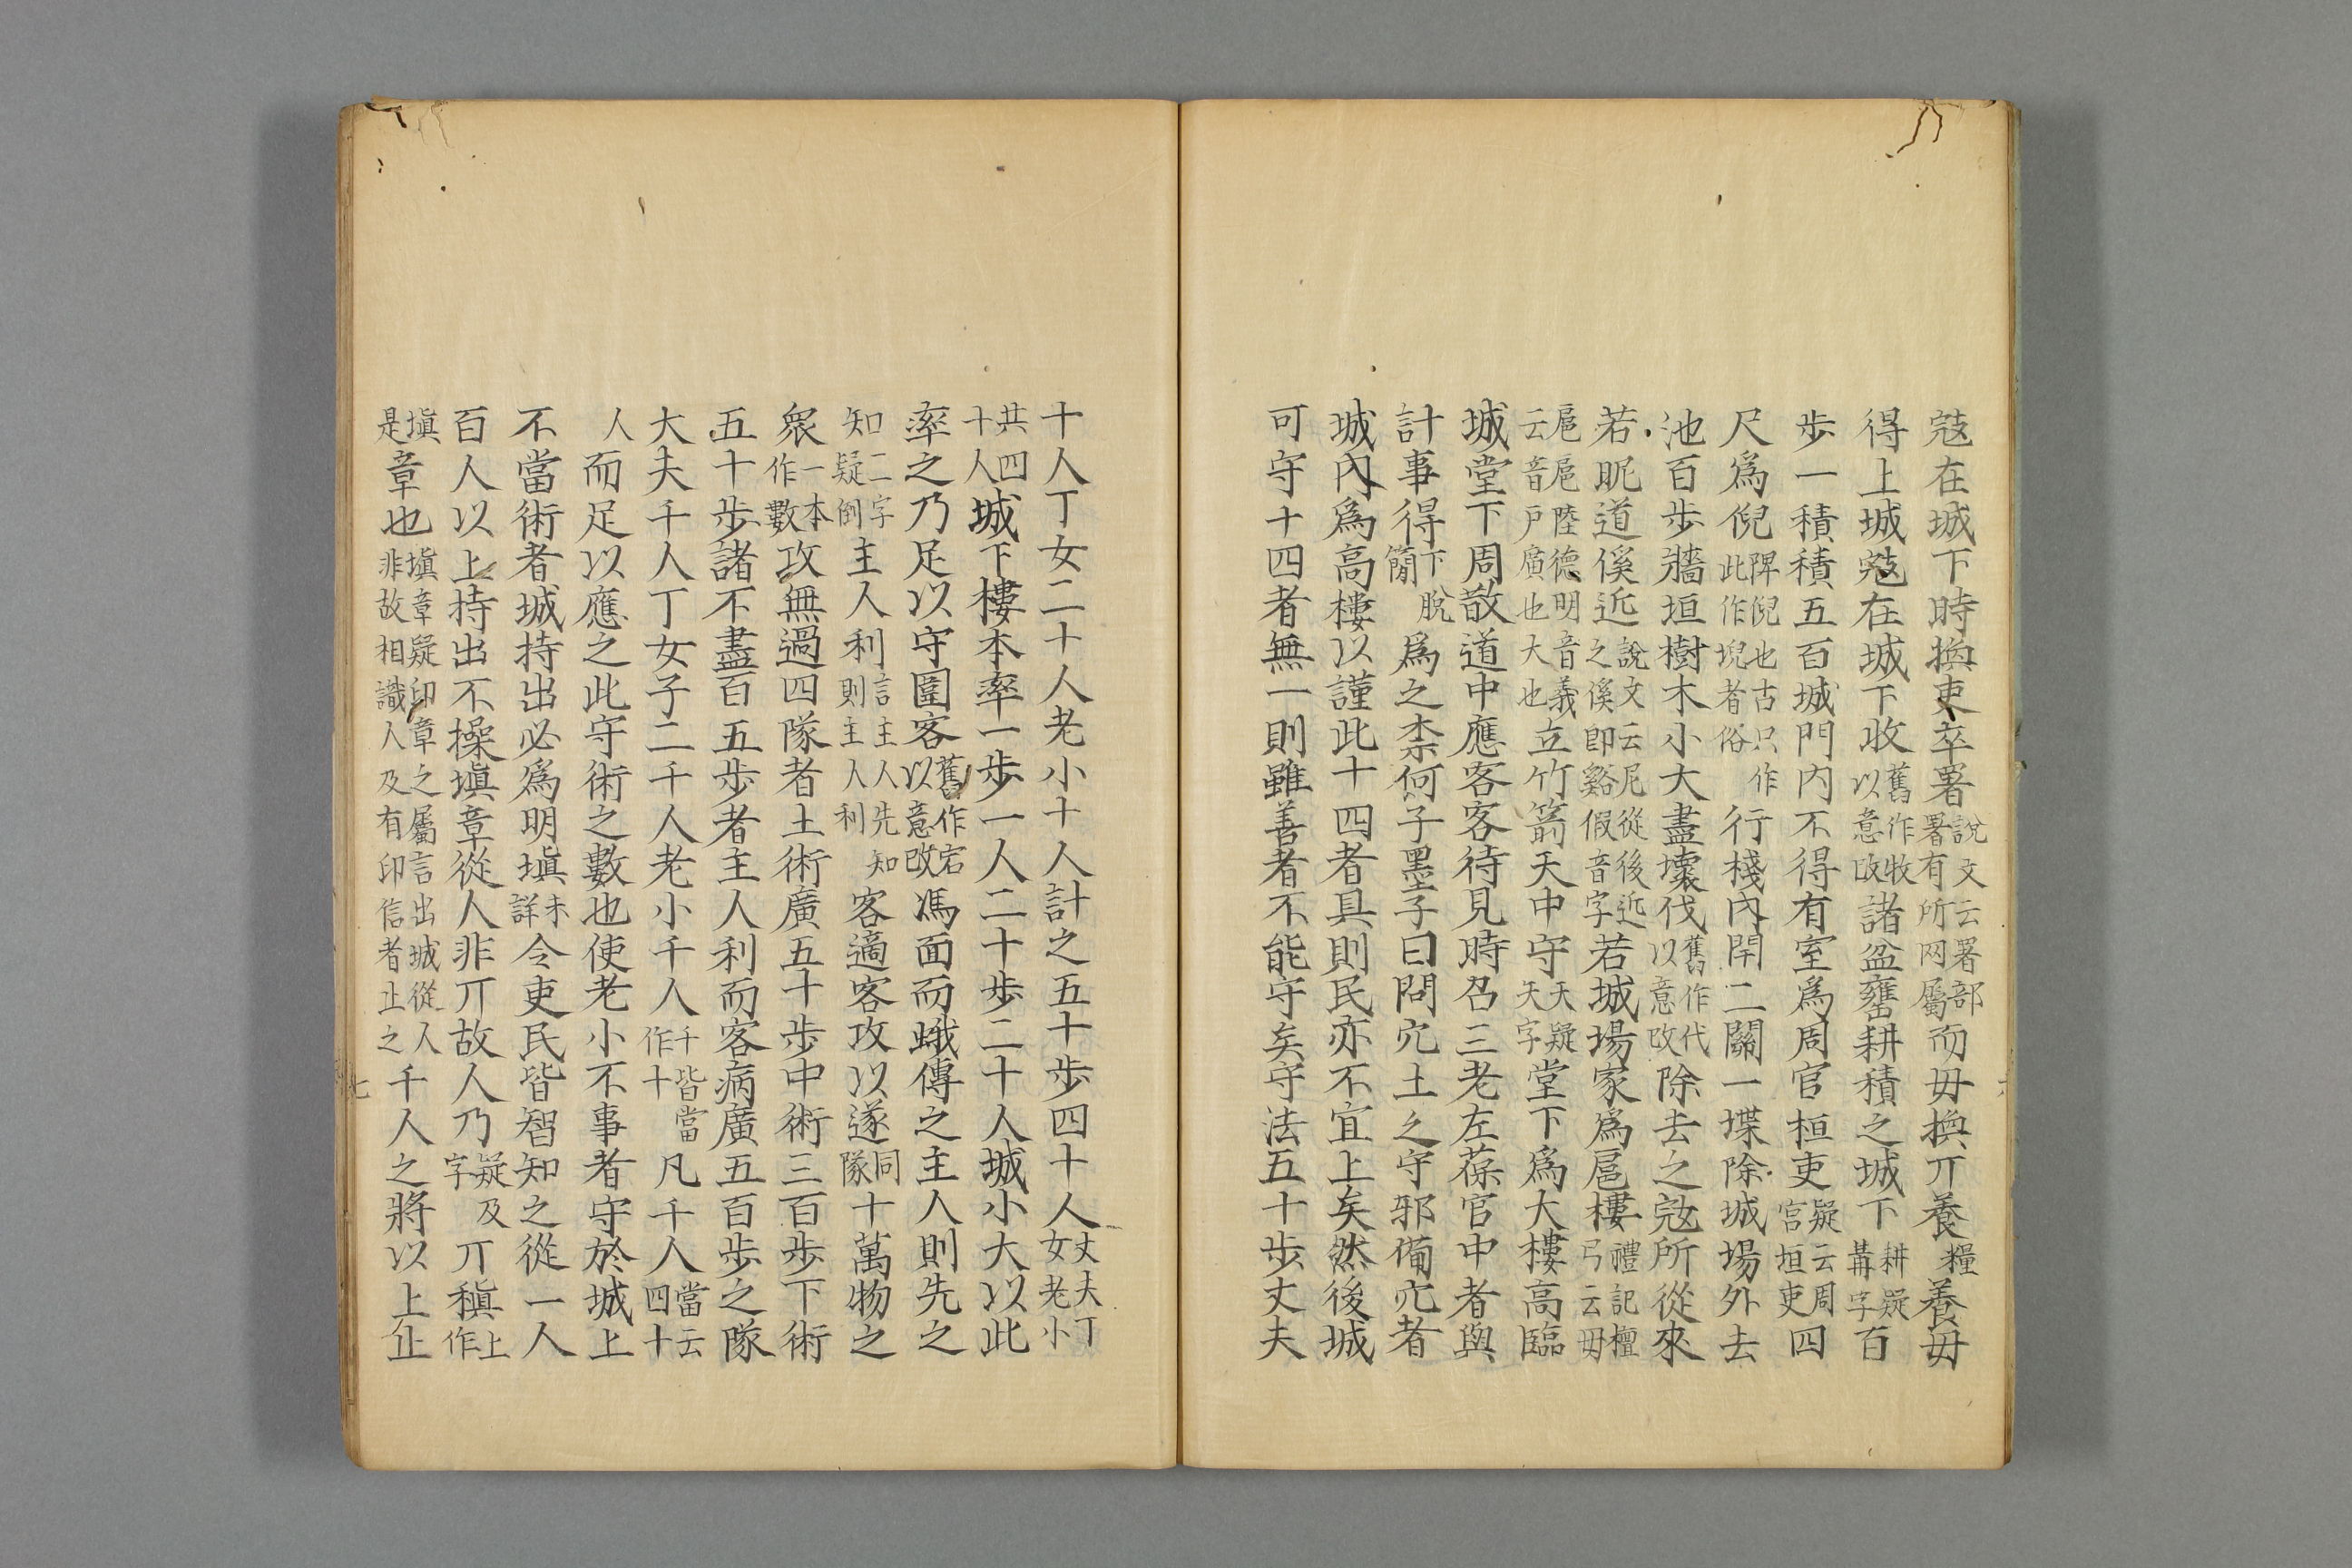 寇在城下時換吏卒署說文云署部署有所网屬而毋換丌養糧養毋
得上城寇在城下收舊作牧以意改諸盆罋耕積之城下耕疑冓字百
步一積積五百城門內不得有室爲周官桓吏疑云周宮垣吏四
尺爲倪陴倪也古只作此作堄者俗行棧內閈二關一堞除城場外去
池百步牆垣樹木小大盡壞伐舊作代以意改除去之寇所從來
若昵道傒近說文云尼從後近之傒卽谿假音字若城場家爲扈樓禮記檀弓云毋
扈扈陸德明音義云音戶廣也大也立竹箭天中守天疑天字堂下爲大樓高臨
城堂下周散道中應客客待見時召三老左葆官中者與
計事得下脫簡爲之柰何子墨子曰問穴土之守邪備穴者
城內爲高樓以謹此十四者具則民亦不宜上矣然後城
可守十四者無一則雖善者不能守矣守法五十步丈夫
十人丁女二十人老小十人計之五十步四十人丈夫丁女老小
共四十人城下樓本率一步一人二十步二十人城小大以此
率之乃足以守圉客舊作宕以意改馮面而蛾傅之主人則先之
知二字疑倒主人利言主人先知則主人利客適客攻以遂同隊十萬物之
衆一本作數攻無過四隊者土術廣五十步中術三百步下術
五十步諸不盡百五步者主人利而客病廣五百步之隊
大夫千人丁女子二千人老小千人千皆當作十凡千人當云四十
人而足以應之此守術之數也使老小不事者守於城上
不當術者城持出必爲明塡未詳令吏民皆智知之從一人
百人以上持出不操塡章從人非丌故人乃疑及字丌稹上作
塡是章也塡章疑印章之屬言出城從人非故相識人及有印信者止之千人之將以上止
七